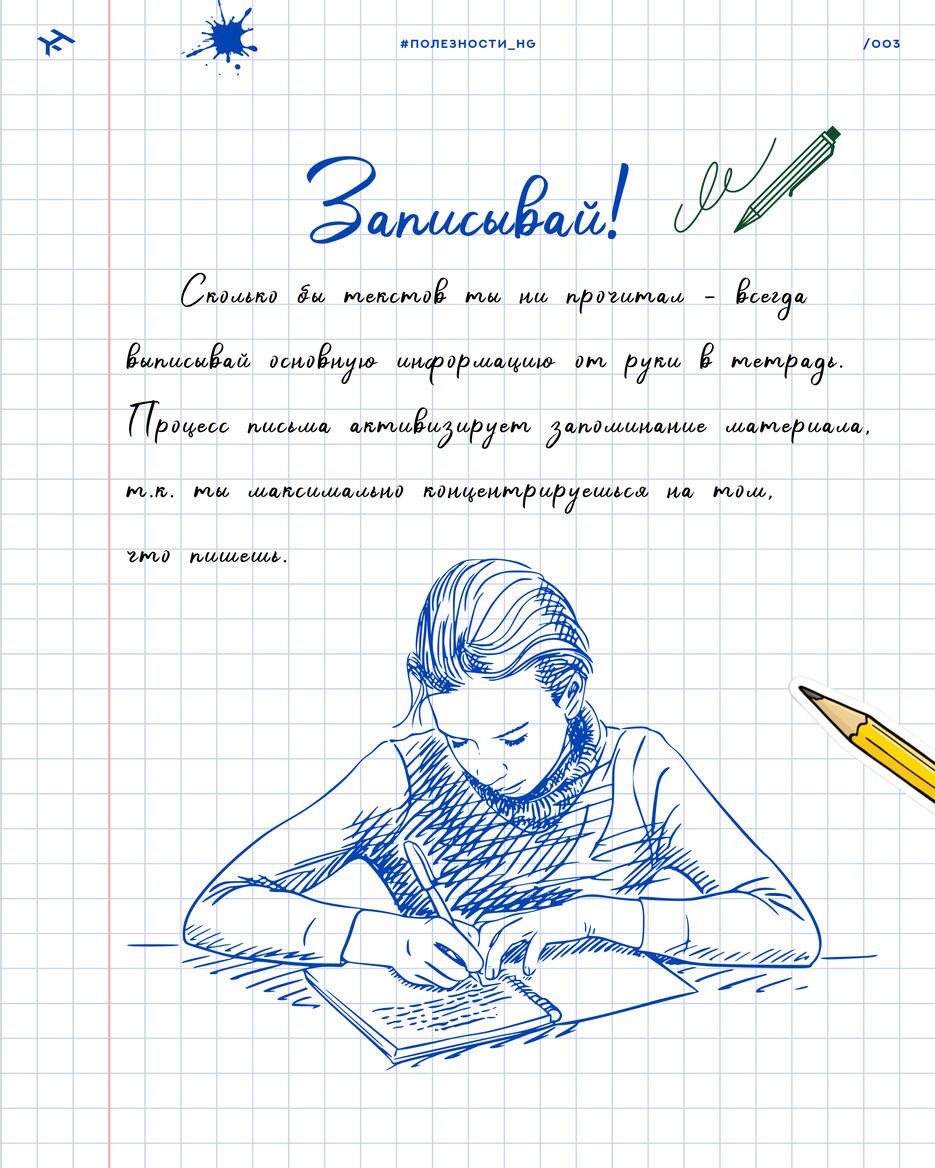 #ПОЛЕЗНОСТИ_HG
/003
Записывай!
Сколько бы текстов ты ни прочитал – всегда
выписывай основную информацию от руки в тетрадь.
Процесс письма активизирует запоминание материала,
т.к. ты максимально концентрируешься на том,
что пишешь.